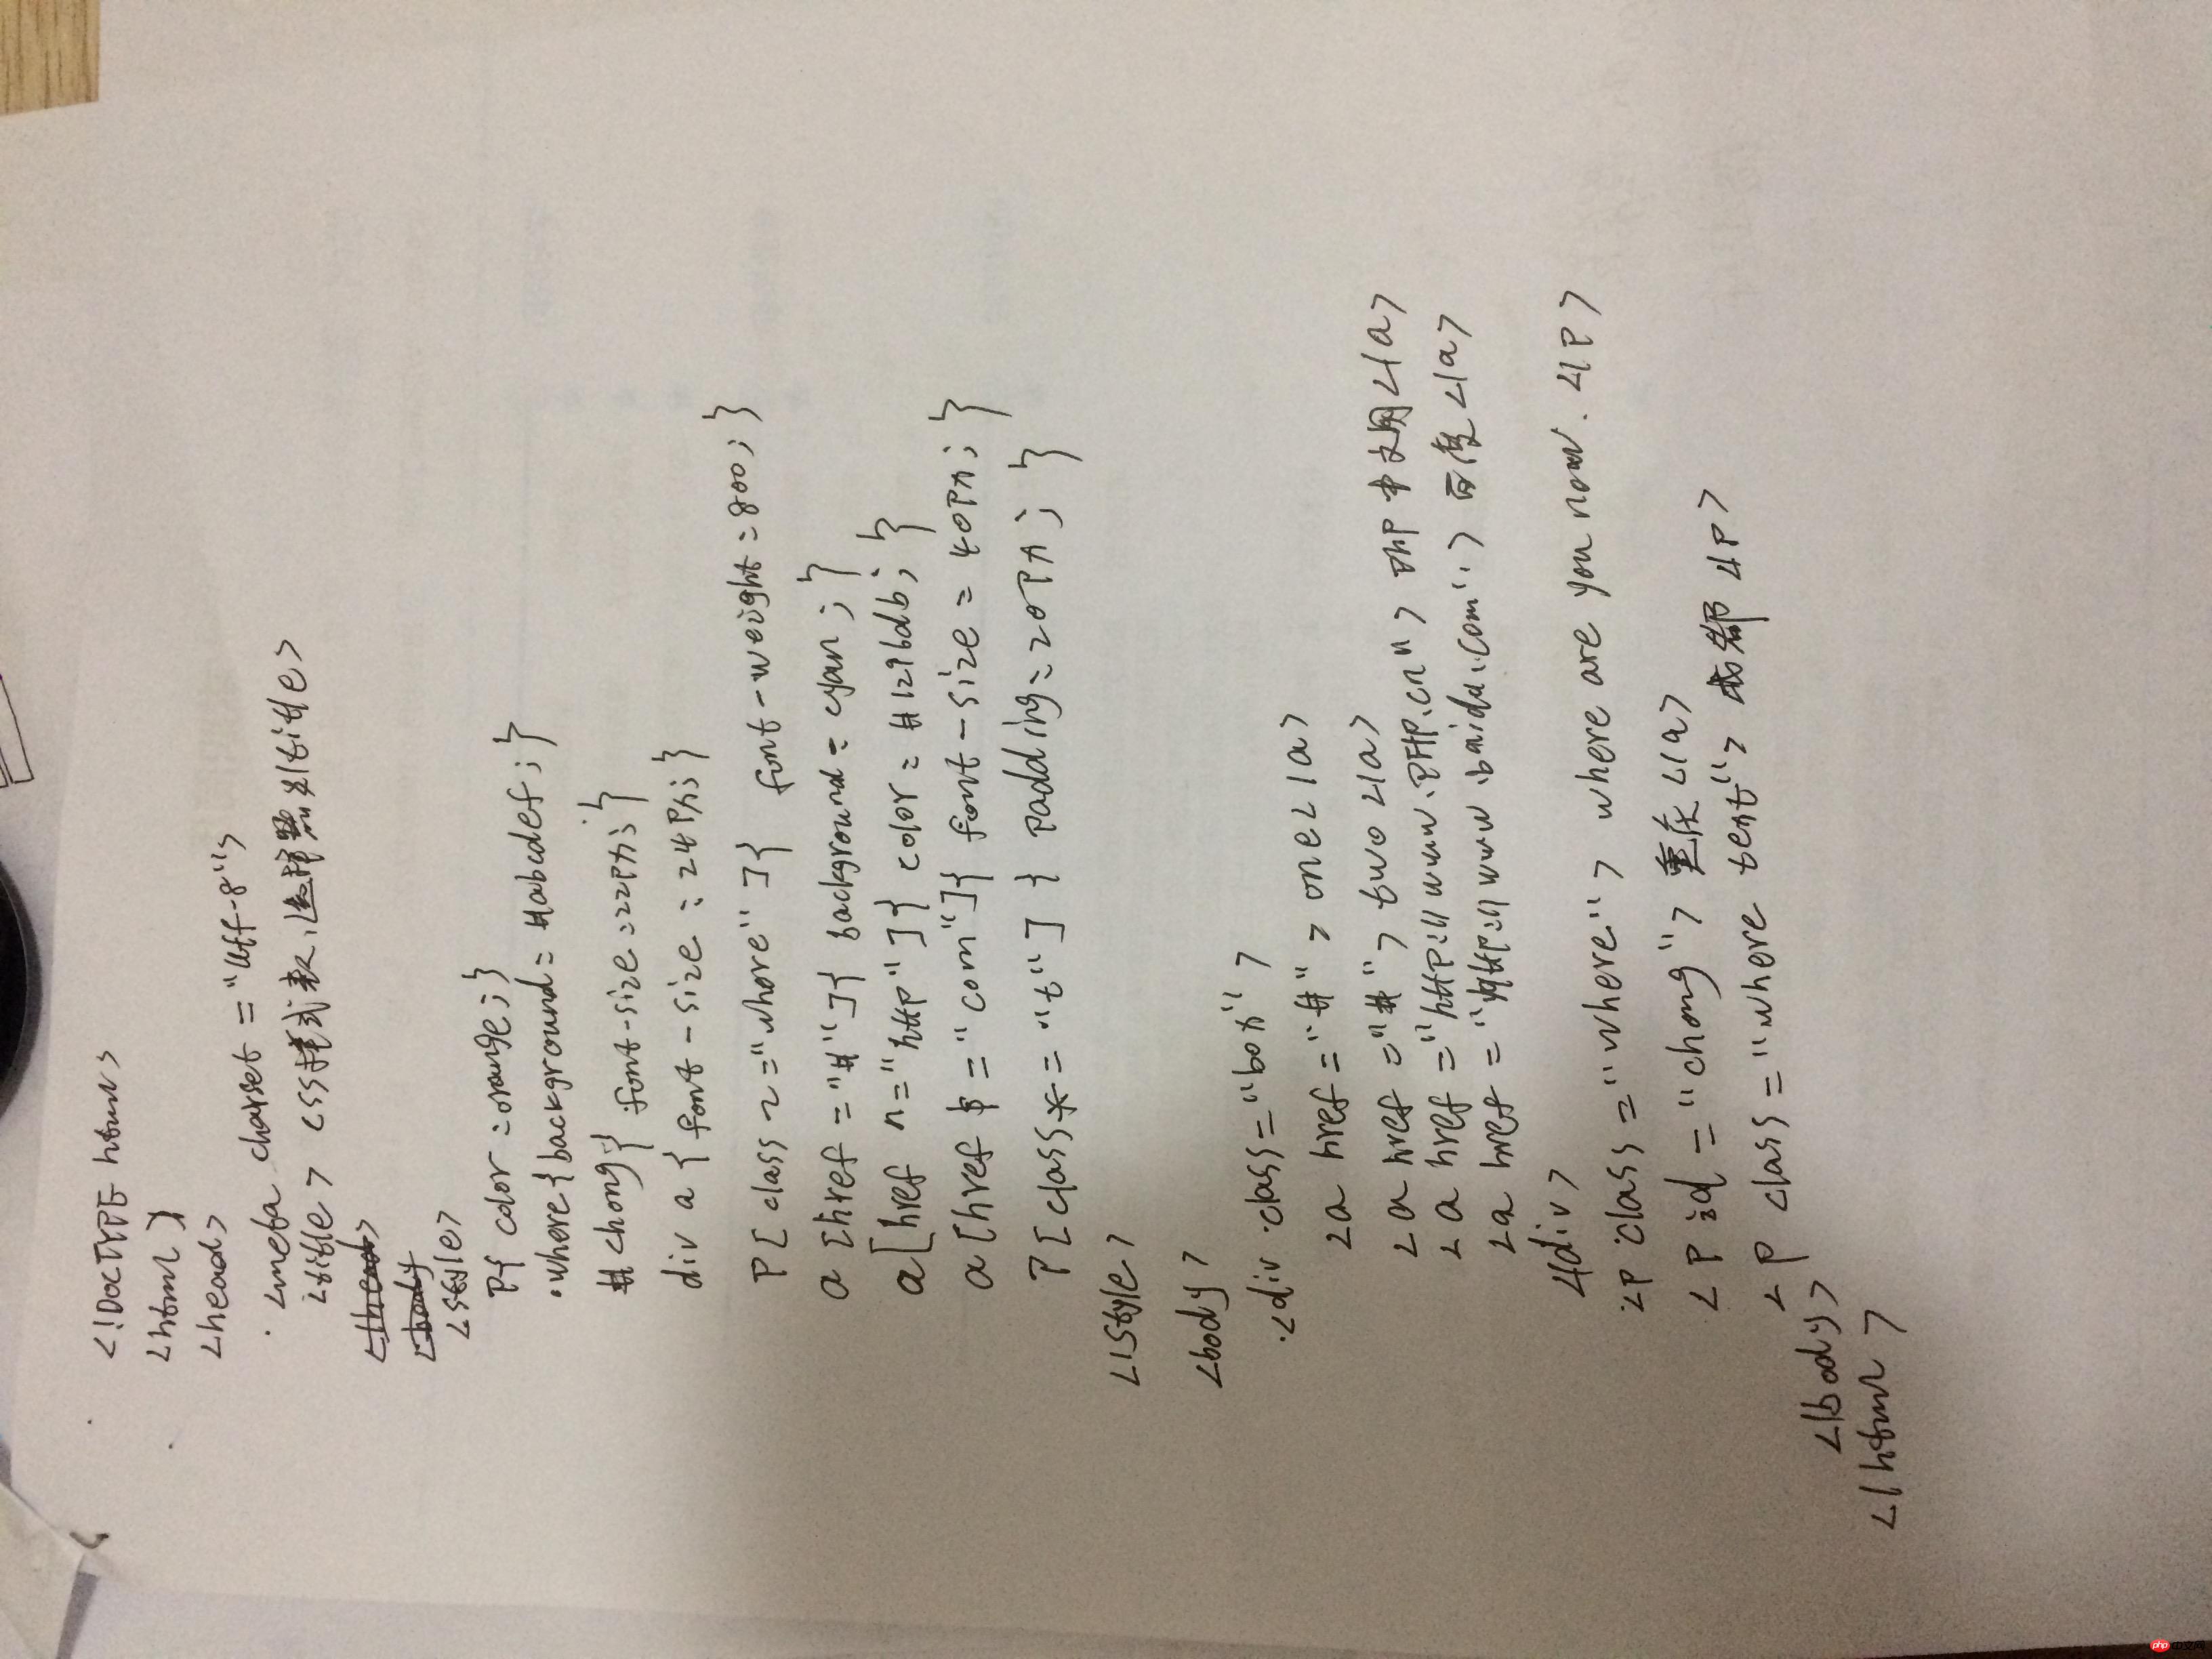 <!DOCTYPE html>
<html>
<head>
<meta charset="utf-8">
<title> css样式表,选择器</title>
</head>
<body
<style>
P{ color:orange;}
.where{background:#abcdef;}
#chong{ font-size:22px;}
div a { font-size:24px;}
P[class ~="where"]{ font-weight:800;}
a[href="#"]{ background:cyan;}
a[href ^="http"]{ color:#1296db;}
a[href $="com"]{ font-size:40px;}
P[class*="t"] { padding:20px; }
</style>
<body>
<div class="box">
<a href="#"> one</a>
<a href="#"> two</a>
<a href="http://www.PHP.cn"> PHP中文网</a>
<a href="http://www.baidu.com"> 百度</a>
</div>
<P class="where"> where are you now.</P>
<P id="chong"> 重庆</a>
<P class="where text"> 成都</P>
</body>
</html>
php